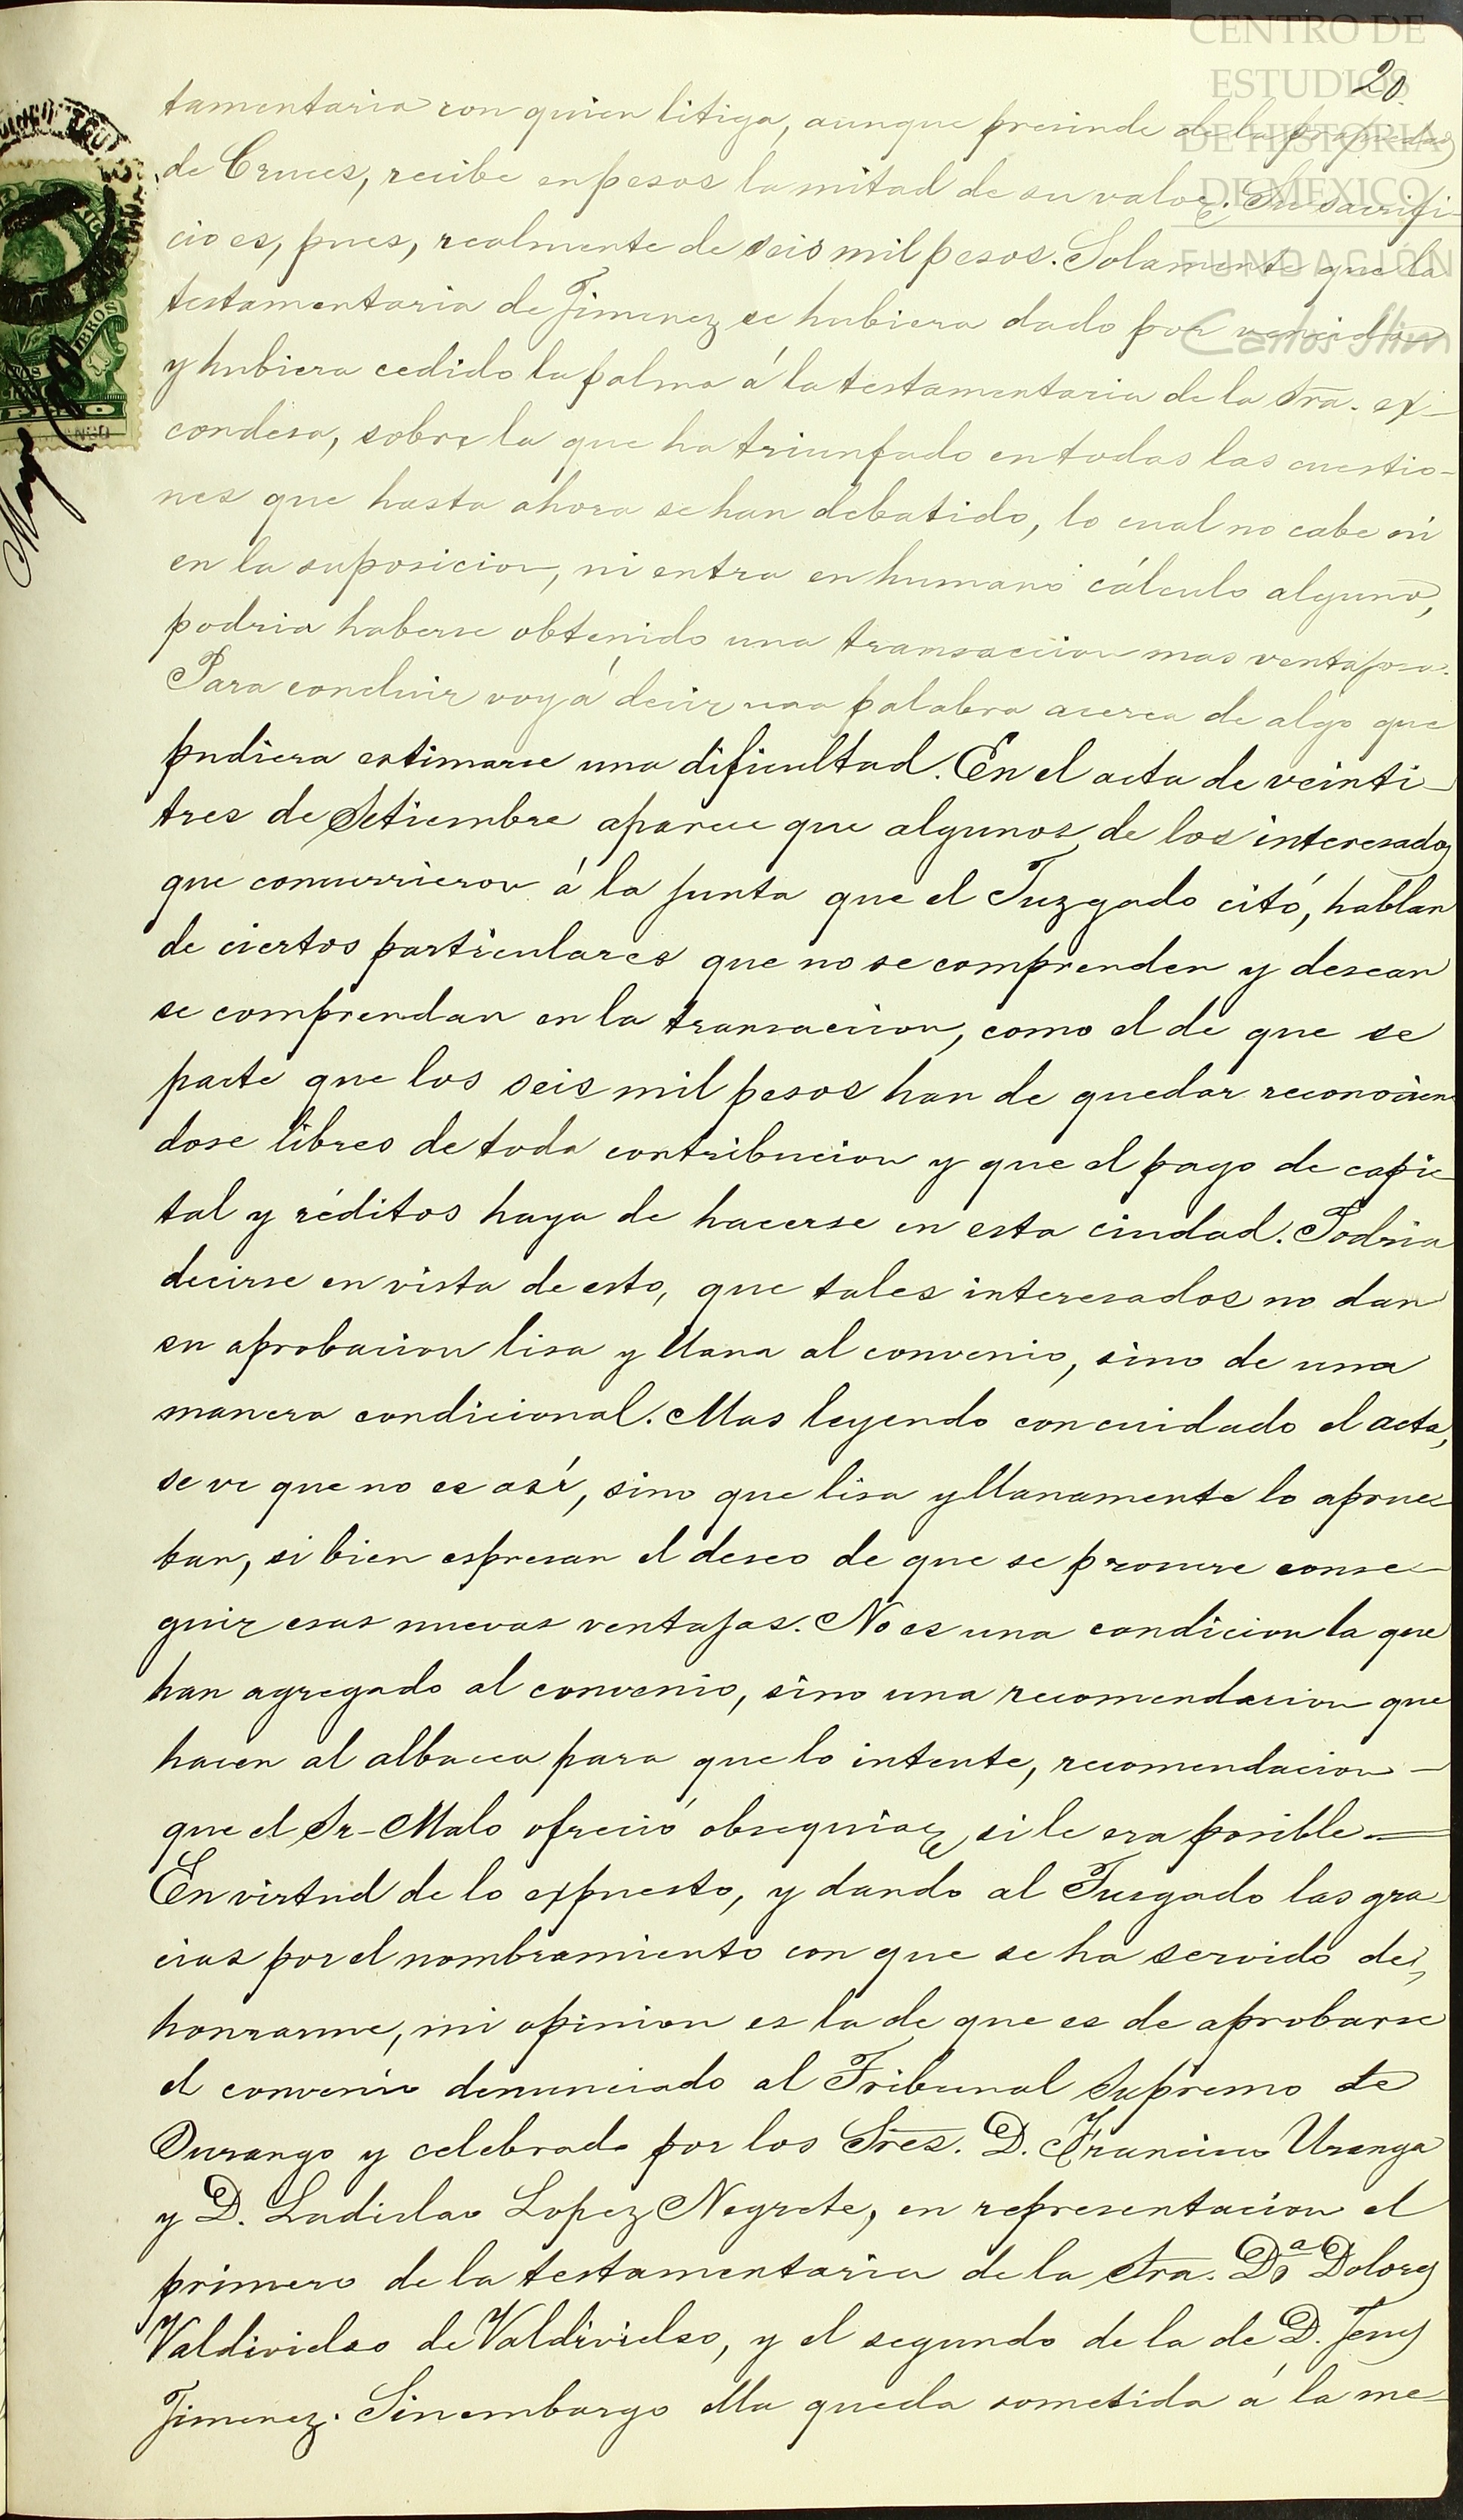 CENTRO DE
ESTUDIOS
DE HISTORIA
DE MEXICO
FUNDACIÓN
Carlos Slim
20.
tamentaria con quien litiga, aunque presinde de la propiedad
de Cruces, recibe en pesos la mitad de su valor. Su sacrifi-
cio es, pues, realmente de seis mil pesos. Solamente que la
testamentaria de Jimenez se hubiera dado por vencida
y hubiera cedido la palma á la testamentaria de la Sra. ex-
condesa, sobre la que ha triunfado en todas las cuestio-
nes que hasta ahora se han debatido, lo cual no cabe ni
en la suposicion, ni entra en humano cálculo alguno,
podria haberse obtenido una transaccion mas ventajosa.
Para concluir voy á decir una palabra acerca de algo que
pudiera estimarse una dificultad. En el acta de veinti-
tres de Setiembre aparece que algunos de los interesados
que concurrieron á la junta que el Juzgado citó, hablan
de ciertos particulares que no se comprenden y desean
se comprendan en la transaccion, como el de que se
pacte que los seis mil pesos han de quedar reconocien
dose libres de toda contribucion y que el pago de capi-
tal y réditos haya de hacerse en esta ciudad. Podria
decirse en vista de esto, que tales interesados no dan
su aprobacion lisa y llana al convenio, sino de una
manera condicional. Mas leyendo con cuidado el acta,
se ve que no es así, sino que lisa y llanamente lo aprue-
ban, si bien espresan el deseo de que se procure conse-
guir esas nuevas ventajas. No es una condicion la que
han agregado al convenio, sino una recomendacion que
hacen al albacea para que lo intente, recomendacion -
que el Sr. Malo ofreció obsequiar, si le era posible. =
En virtud de lo expuesto, y dando al Juzgado las gra-
cias por el nombramiento con que se ha servido de,
honrarme, mi opinion es la de que es de aprobarse
el convenio denunciado al Tribunal Supremo de
Durango y celebrado por los Sres. D. Francisco Uranga
y D. Ladislao Lopez Negrete, en representacion el
primero de la testamentaria de la Sra. Da. Dolores
Valdivielso de Valdivielso, y el segundo de la de D. Jesus
Jimenez. Sin embargo ella queda sometida á la me-